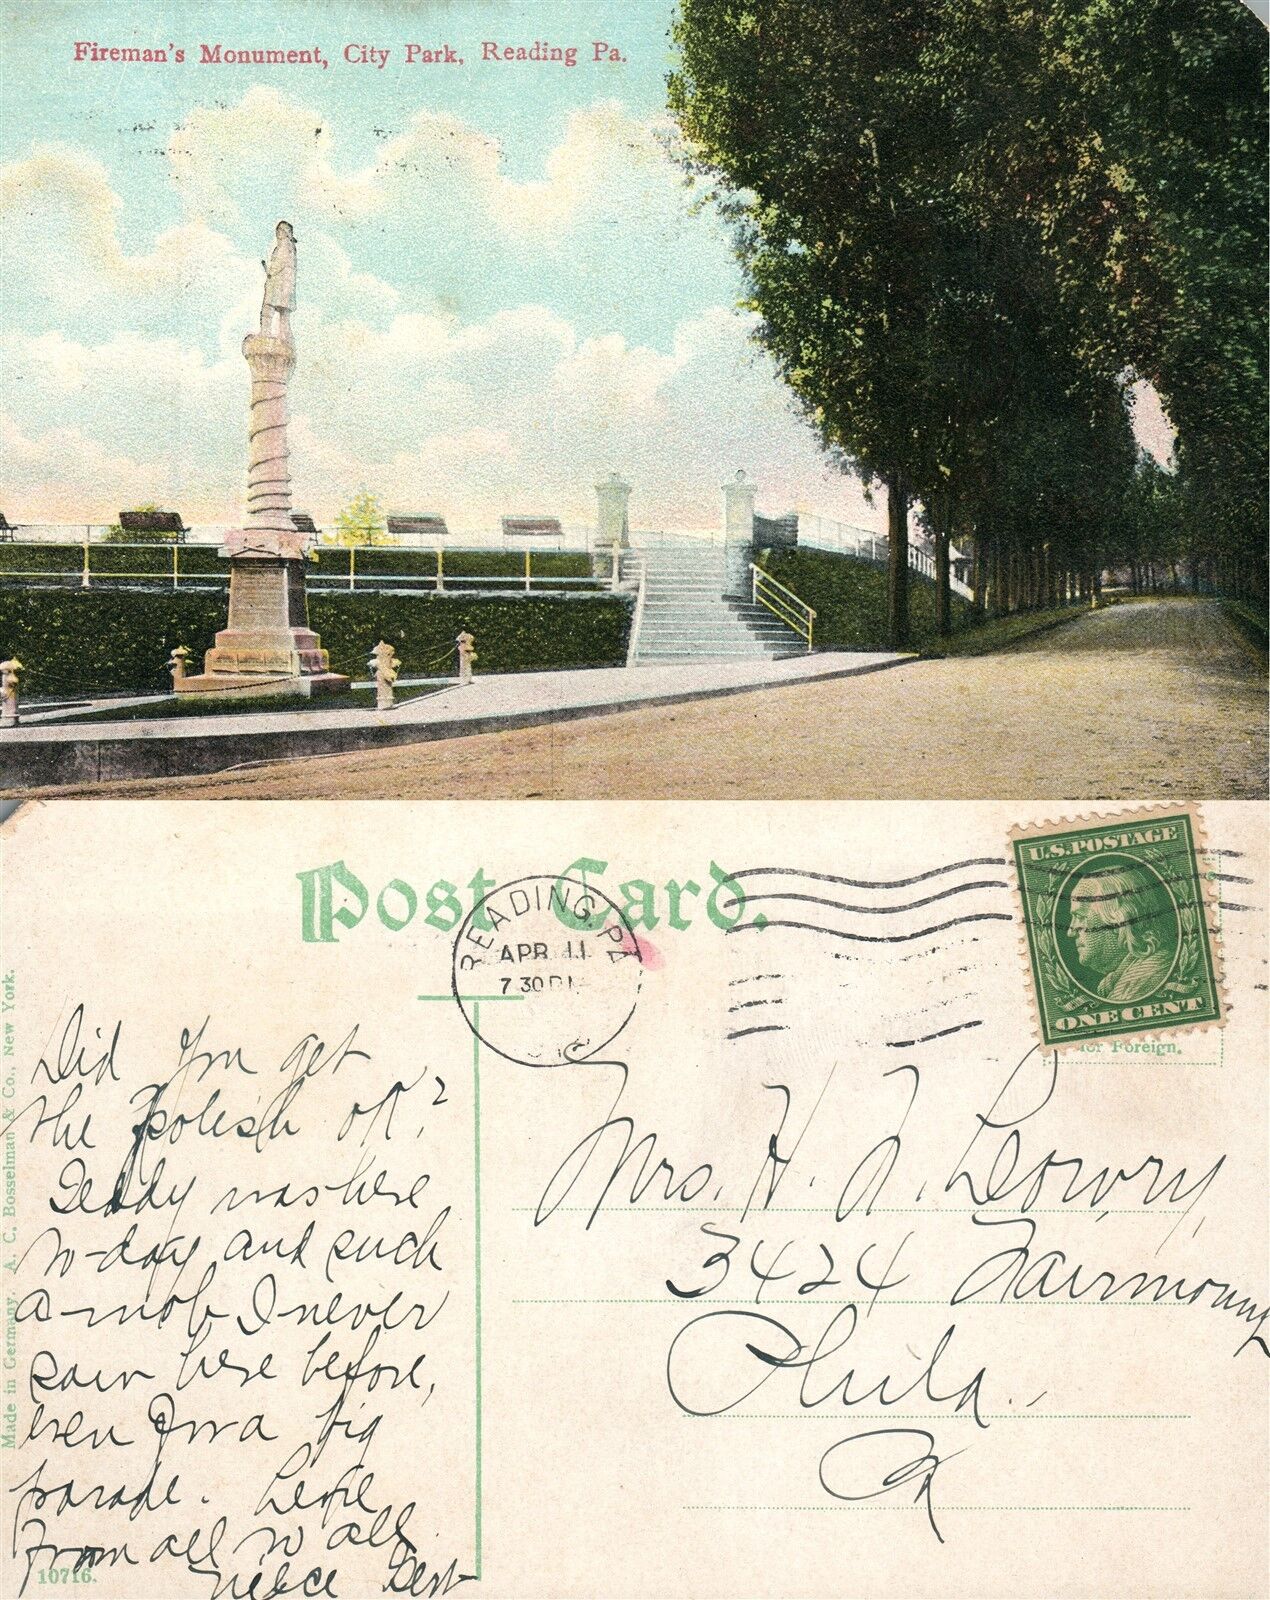 Fireman's Monument, City Park, Reading Pa.
Post Card.
READING, PA
APR 11
7 30 P
U.S. POSTAGE
ONE CENT
for Foreign.
Made in Germany. A. C. Bosselman & Co., New York.
Did you get
the polish OK?
Teddy was here
to-day and such
a mob I never
saw here before,
even for a big
parade. Love
from all to all.
Niece Gert
10716.
Mrs. H. T. Lowry,
3424 Fairmount
Phila.,
Pa